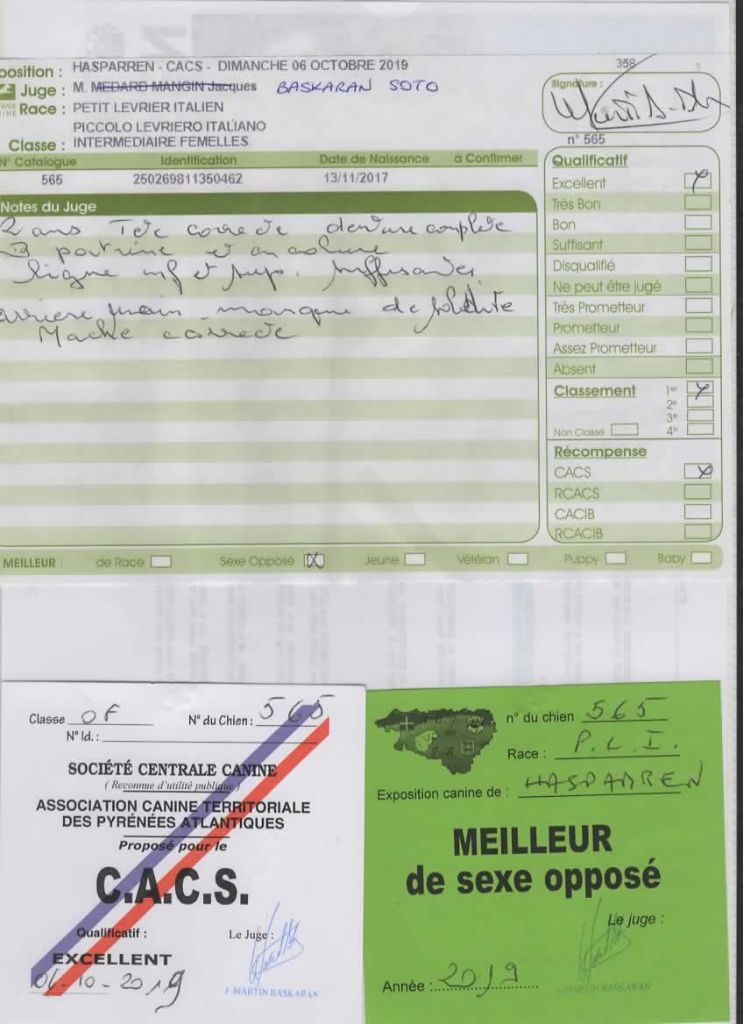 position : HASPARREN - CACS - DIMANCHE 06 OCTOBRE 2019
358
Juge : M. MEDARD MANGIN Jacques BASKARAN SOTO
Race : PETIT LEVRIER ITALIEN
PICCOLO LEVRIERO ITALIANO
Classe : INTERMEDIAIRE FEMELLES
Signature :
n° 565
N° Catalogue Identification Date de Naissance à Confirmer
565 250269811350462 13/11/2017
Notes du Juge
2 ans Tete correcte denture complete
B poitrine et encolure
ligne inf et sup. suffisantes
arriere main manque de solidite
Marche correcte
Qualificatif
Excellent X
Très Bon
Bon
Suffisant
Disqualifié
Ne peut être jugé
Très Prometteur
Prometteur
Assez Prometteur
Absent
Classement 1er X
2e
3e
Non Classé 4e
Récompense
CACS X
RCACS
CACIB
RCACIB
MEILLEUR : de Race Sexe Opposé X Jeune Vétéran Puppy Baby
Classe OF N° du Chien : 565
N° Id. :
SOCIÉTÉ CENTRALE CANINE
( Reconnue d'utilité publique )
ASSOCIATION CANINE TERRITORIALE
DES PYRÉNÉES ATLANTIQUES
Proposé pour le
C.A.C.S.
Qualificatif : Le Juge :
EXCELLENT
06-10-2019
F MARTIN BASKARAN
n° du chien 565
Race : P.L.I.
Exposition canine de : HASPARREN
MEILLEUR
de sexe opposé
Le juge :
Année : 2019
F MARTIN BASKARAN